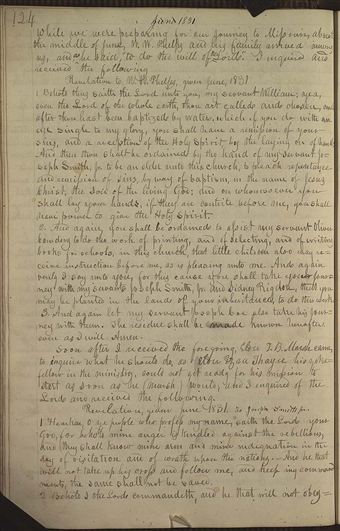 124 June 1831
While we were preparing for our journey to Missouri, about
the middle of June, W. W. Phelps and his family arrived among
us, and he said, to do the will of the Lord. I inquired and
received the following
Revelation to W. W. Phelps, given June, 1831.
1 Behold thus saith the Lord unto you, my servant William; yea,
even the Lord of the whole earth, thou art called and chosen, and
after thou hast been baptized by water, which if you do with an
eye single to my glory, you shall have a remission of your
sins, and a reception of the Holy Spirit by the laying on of hands.
And then thou shalt be ordained by the hand of my servant Jo-
seph Smith, jr. to be an elder unto this church, to preach repentance
and remission of sins, by way of baptism, in the name of Jesus
Christ, the Son of the living God; and on whomsoever you
shall lay your hands, if they are contrite before me, you shall
have power to give the Holy Spirit.
2. And again, you shall be ordained to assist my servant Oliver
Cowdery to do the work of printing, and of selecting, and of writing
books for schools, in this church, that little children also may re-
ceive instruction before me as is pleasing unto me. And again
verily I say unto you, for this cause you shall take your jour-
ney with my servants Joseph Smith, jr. and Sidney Rigdon, that you
may be planted in the land of your inheritance, to do this work.
3. And again let my servant Joseph Coe also take his jour-
ney with them. The residue shall be made known hereafter
even as I will. Amen.
Soon after I received the foregoing, Elder T. B. Marsh came,
to inquire what he should do, as Elder Ezra Thayre his
fellow in the ministry, could not get ready for his mission to
start as soon as he (Marsh) would, and I inquired of the
Lord and received the following.
Revelation, given June 1831.
1. Hearken, O ye people who profess my name, saith the Lord your
God, for behold mine anger is kindled against the rebellious,
and they shall know mine arm and mine indignation in the
day of visitation and of wrath upon the nations. And he that
will not take up his cross and follow me, and keep my command
ments, the same shall not be saved.
2 Behold I the Lord commandeth, and he that will not obey